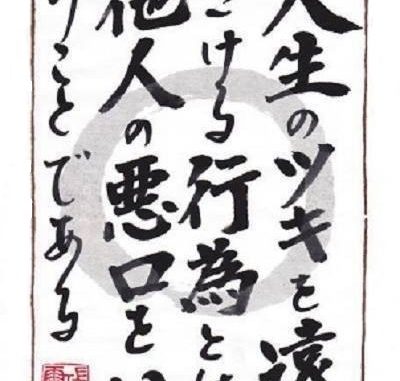 人生のツキを遠
ざける行為とは
他人の悪口を
うことである